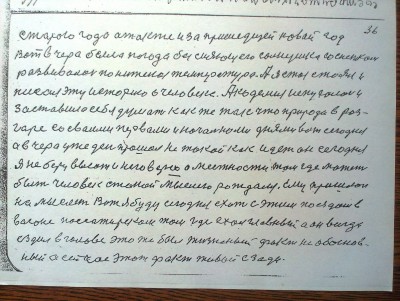 36
старого года а также и за пришедшей новай год
Вот вчера была погода без сияющего солнушка со снегком
развивалась по нитке температура. А я стоял стоял и
писал эту историю о человеке. Академия испугалась и
заставило себя думат как же так что природа в раз-
гаре со своими первами и началными днями вот сегодня
а вчера уже ден прошол не такой как идет он сегодня
Я не беру высот и него а местностей там где может
быт человек с такой мыслею рождаем. Ему пришлося
на мысле. Вот я буду сегодня ехат с этим поездом в
вагоне пассажирском том где ехал главный а он всегда
ездил в голове это же был жизненый факт не обоснов-
ный а сейчас этот факт живый сзади.